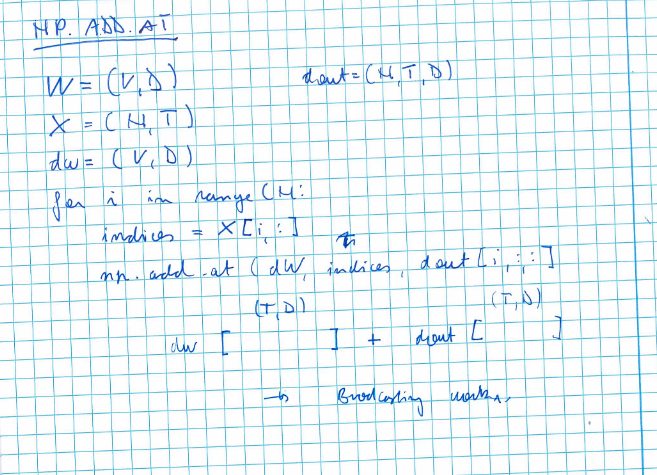 NP. ADD. AT
W = (V,D) dout = (N,T,D)
X = (N,T)
dw = (V,D)
for i in range (N:
indices = X[i,:]
np.add.at (dW, indices, dout[i,:,:]
(T,D) (T,D)
dw [ ] + dout [ ]
→ Brodcasting works.